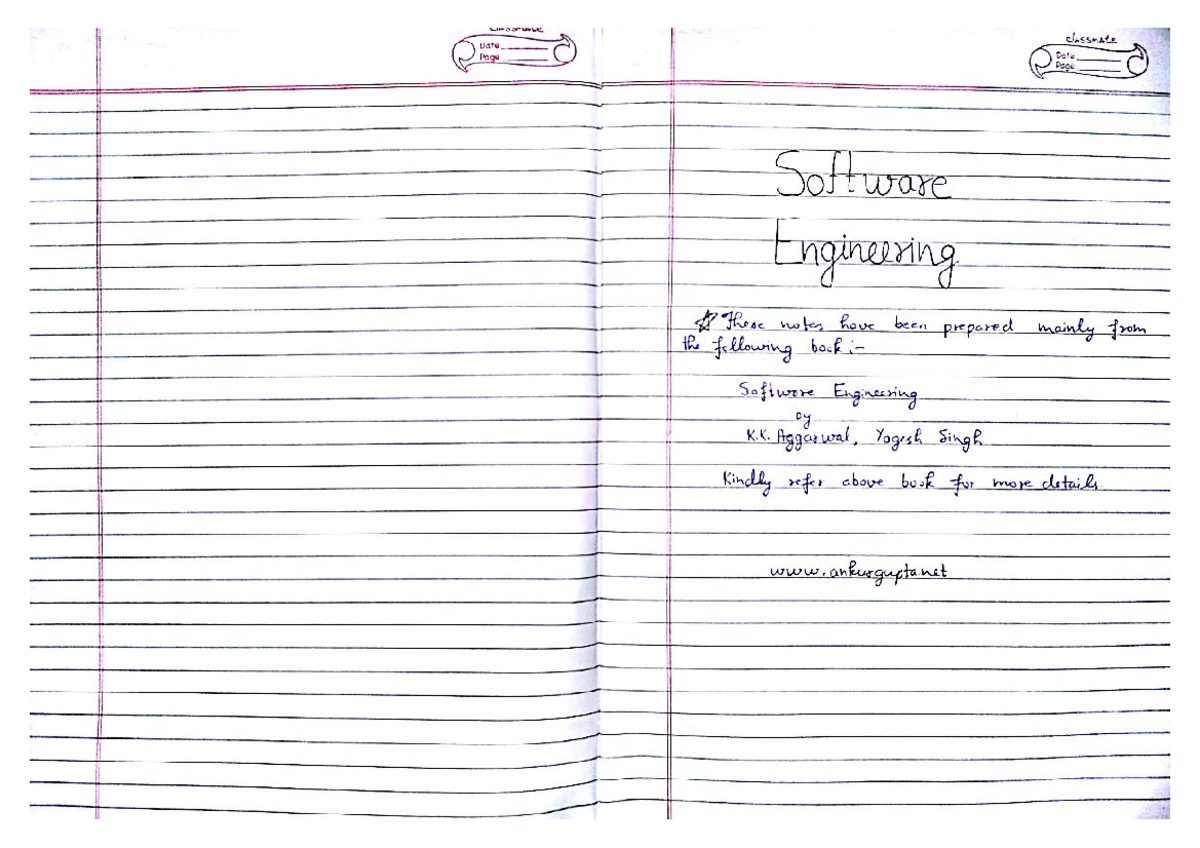 classmate
Date
Page
classmate
Date
Page
Software
Engineering
☆ These notes have been prepared mainly from
the following book :-
Software Engineering
by
K.K. Aggarwal, Yogesh Singh
Kindly refer above book for more details.
www.ankurgupta.net